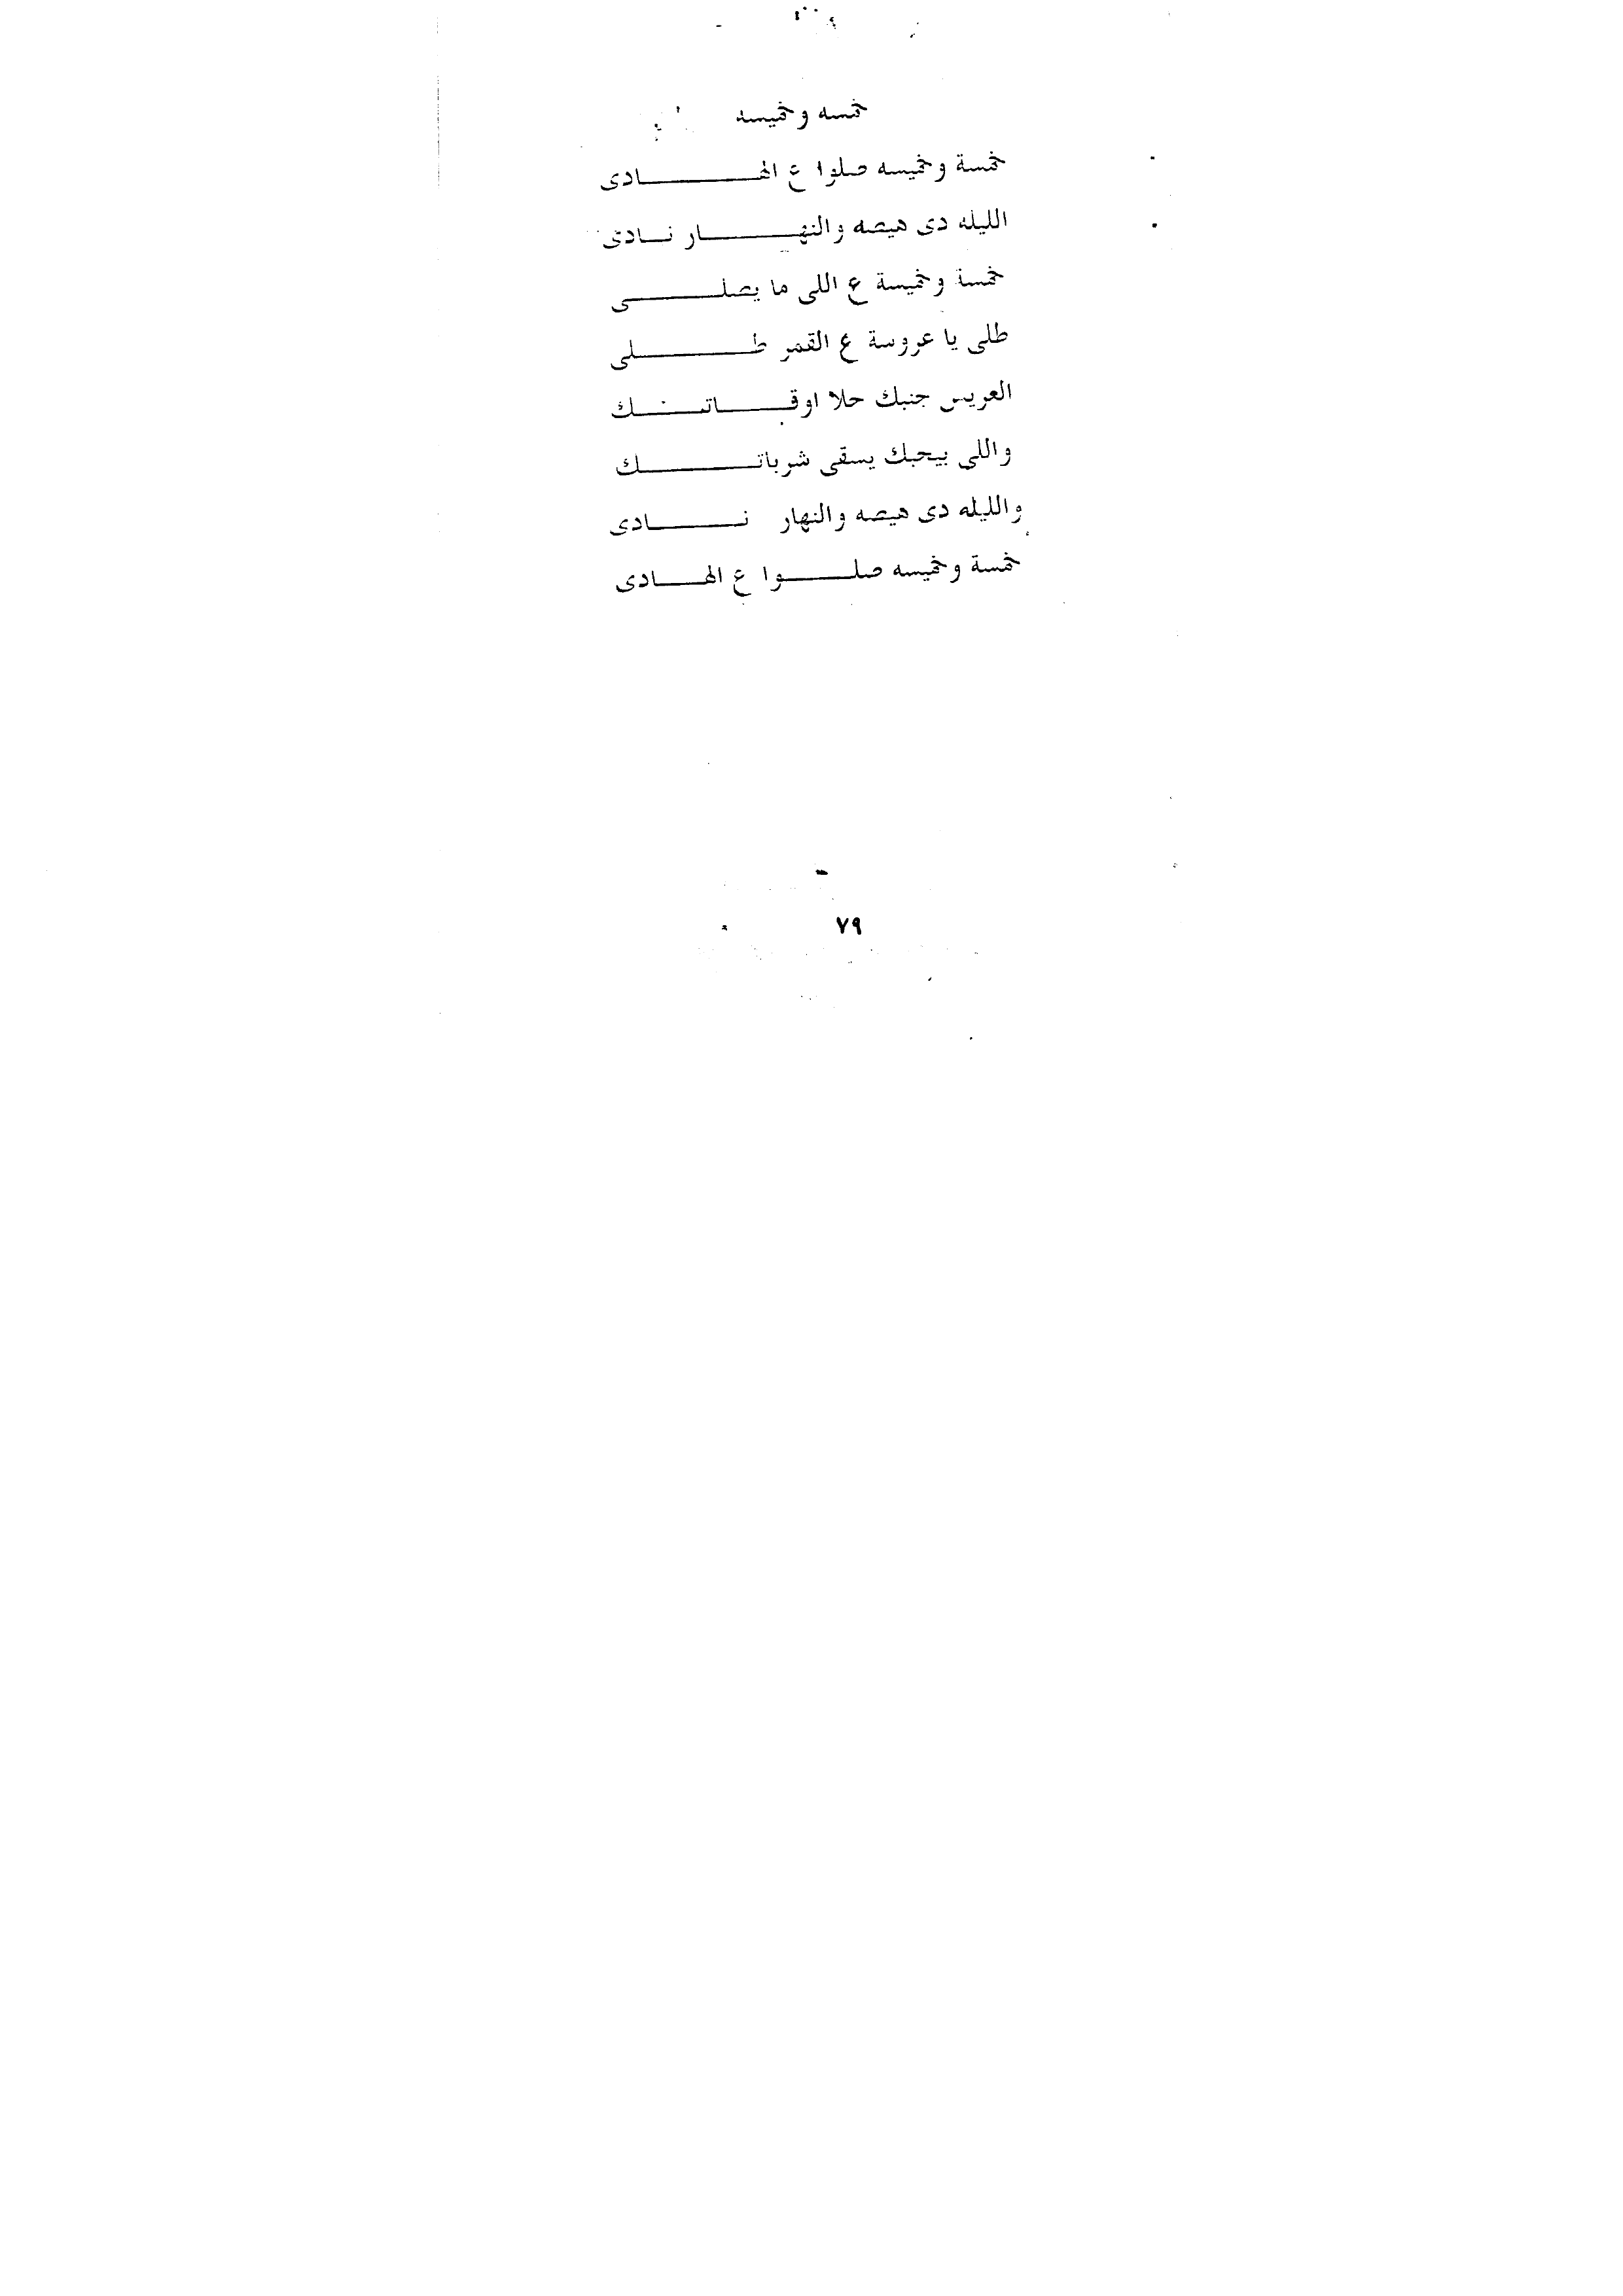 خمسه وخميسه
خمسة وخميسه صلوا ع الهـــــــــادى
الليله دى هيصه والنهـــــــــار نـــادى
خمسة وخميسة ع اللى ما يصلـــــــــى
طلى يا عروسة ع القمر طـــــــــلى
العريس جنبك حلا اوقـــــــاتـــــك
واللى بيحبك يسقى شرباتـــــــــك
والليله دى هيصه والنهار نـــــــــادى
خمسة وخميسه صلـــــــوا ع الهـــــادى
٧٩